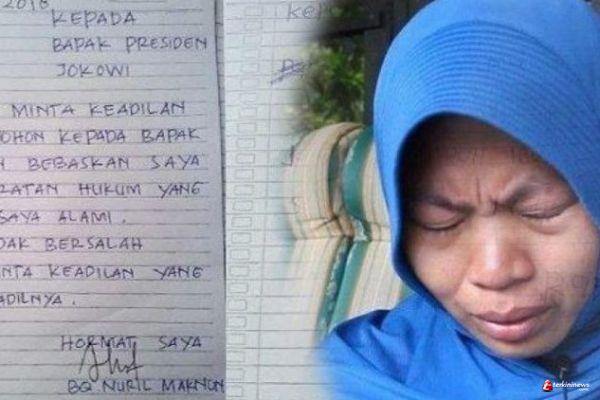 2018
KEPADA
BAPAK PRESIDEN
JOKOWI
MINTA KEADILAN
OHON KEPADA BAPAK
BEBASKAN SAYA
RATAN HUKUM YANG
SAYA ALAMI.
DAK BERSALAH
INTA KEADILAN YANG
ADILNYA.
HORMAT SAYA
BQ NURIL MAKNUN
KEP
terkininews